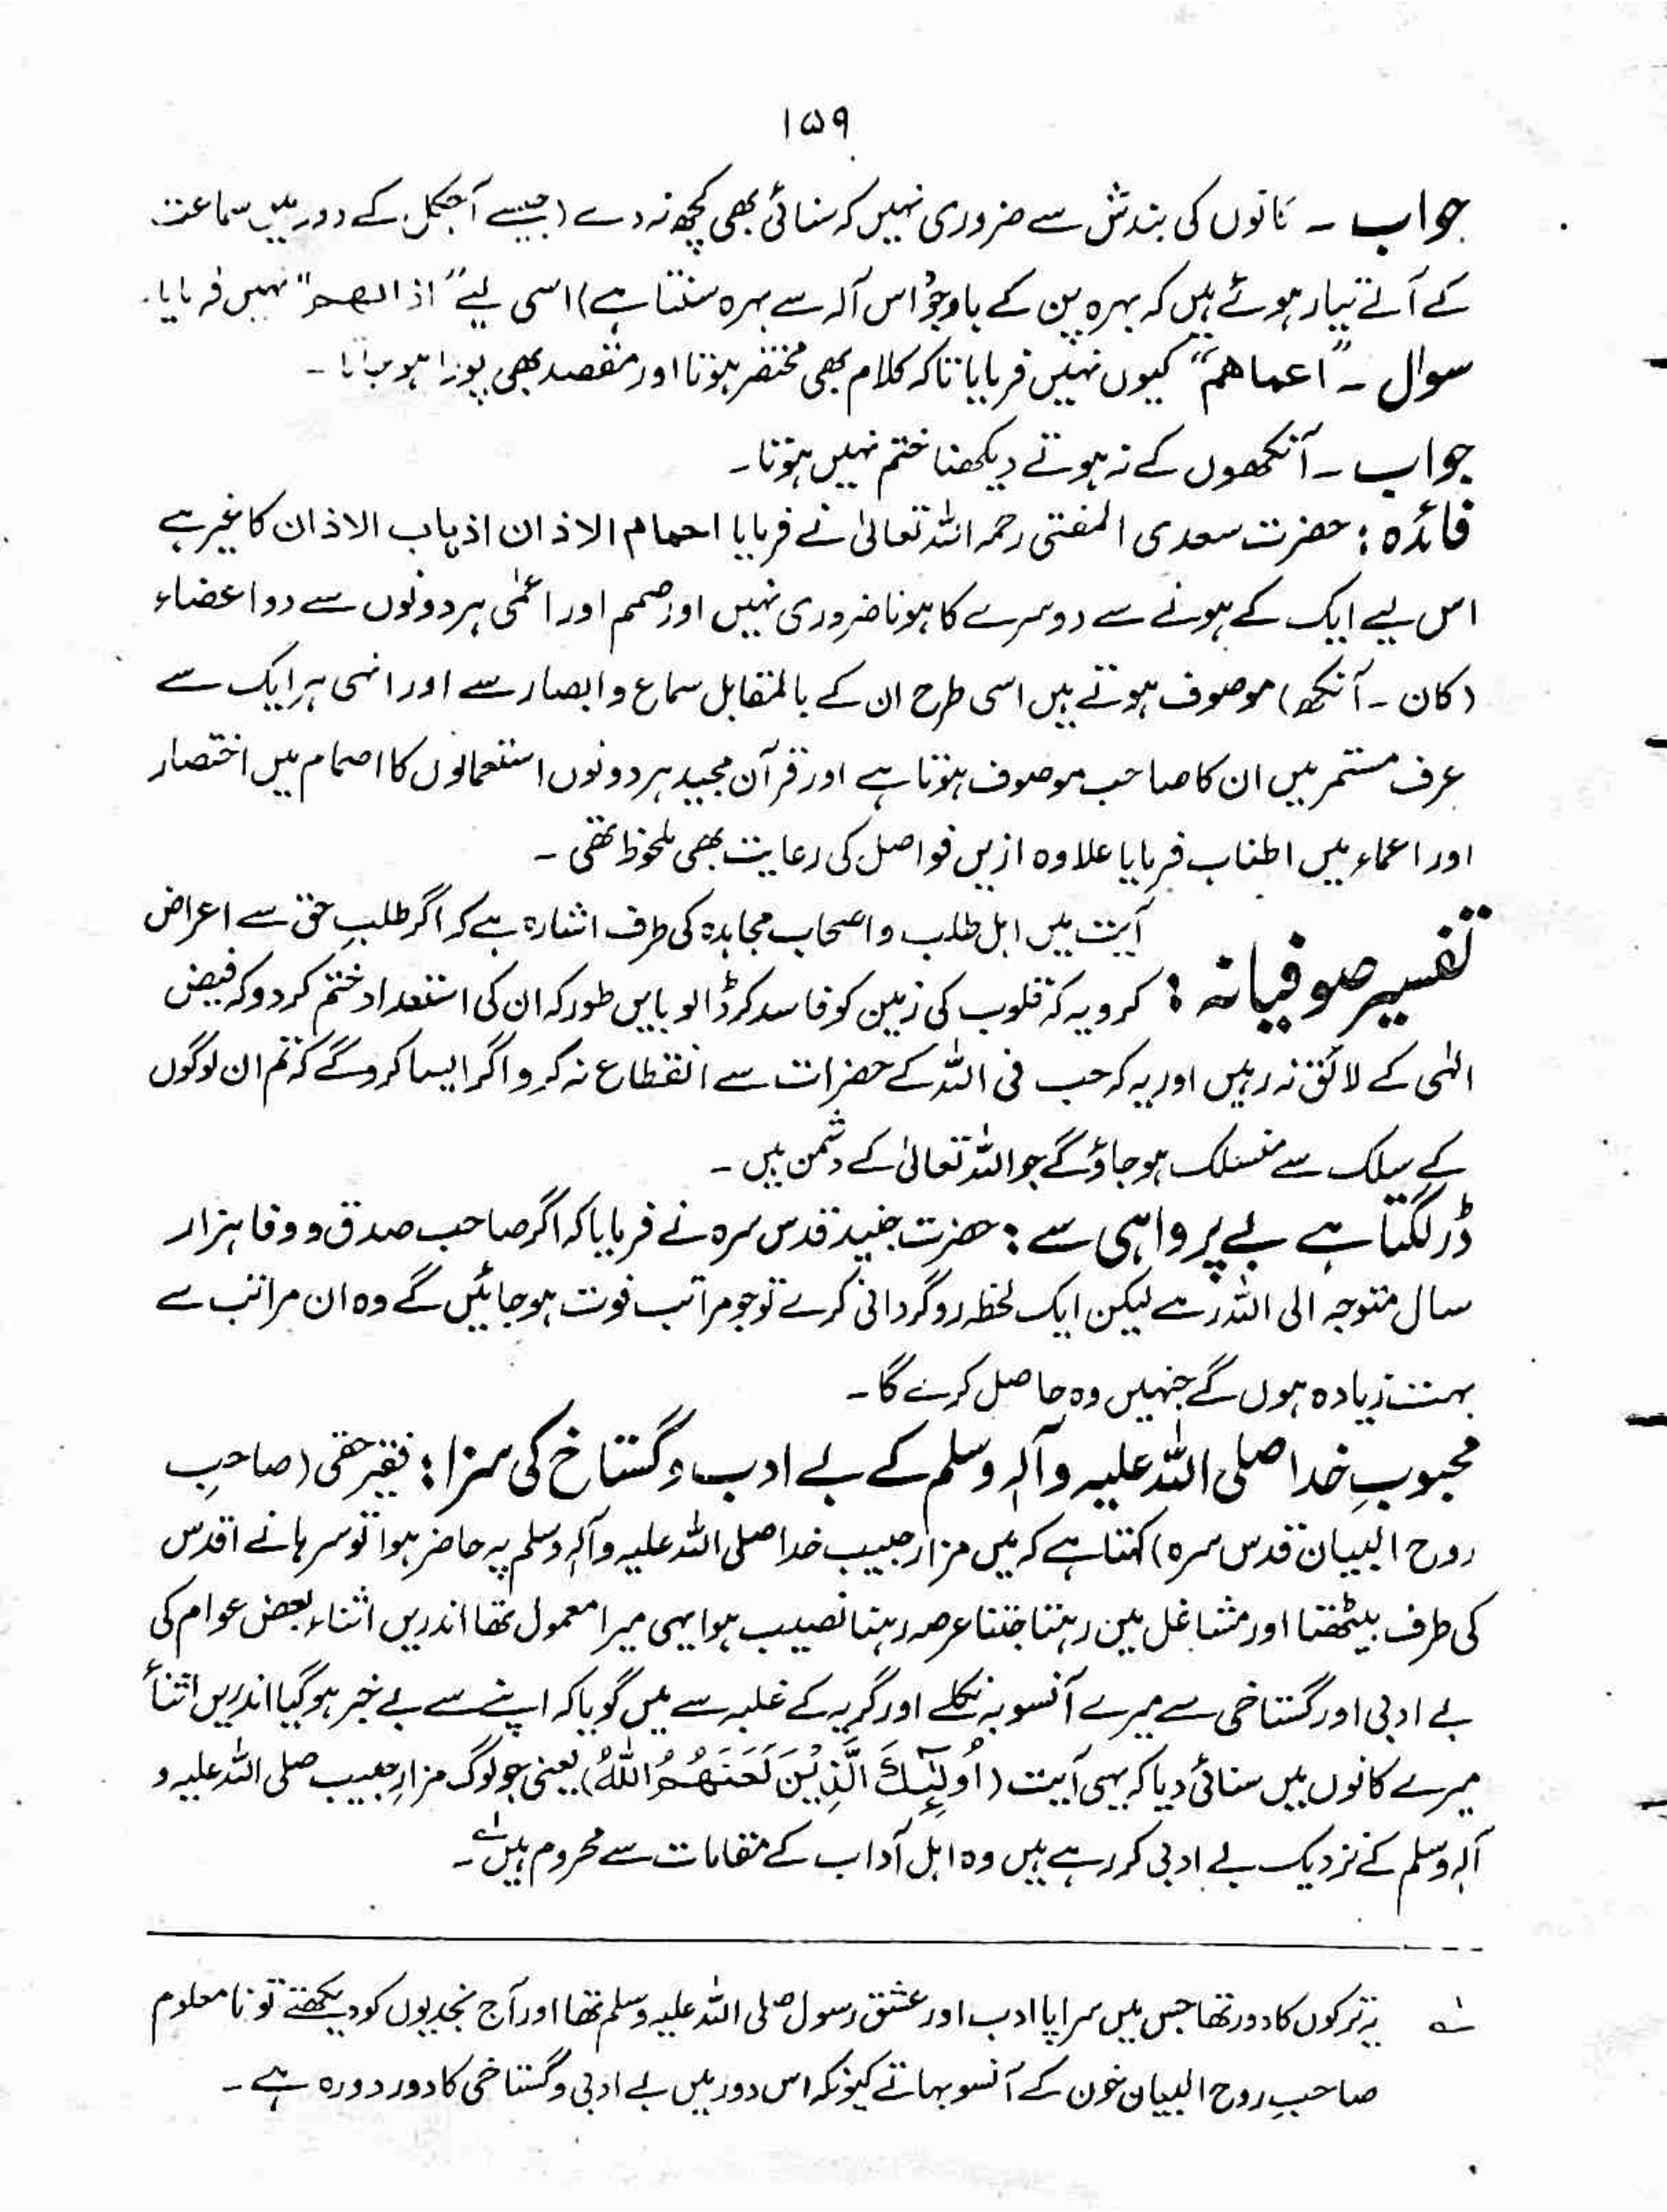 ۱۵۹
جواب ۔ کانوں کی بندش سے ضروری نہیں کہ سنائی بھی کچھ نہ دے (جیسے آجکل کے دور میں سماعت
کے آلے تیار ہوئے ہیں کہ بہرہ پن کے باوجود اس آلہ سے بہرہ سنتا ہے) اسی لیے " اذانھم" نہیں فرمایا۔
سوال ۔ "اعماھم" کیوں نہیں فرمایا تاکہ کلام بھی مختصر ہوتا اور مقصد بھی پورا ہو جاتا ۔
جواب ۔ آنکھوں کے نہ ہوتے دیکھنا ختم نہیں ہوتا ۔
فائدہ : حضرت سعدی المفتی رحمہ اللہ تعالیٰ نے فرمایا احمام الاذان اذہاب الاذان کا غیر ہے
اس لیے ایک کے ہونے سے دوسرے کا ہونا ضروری نہیں اور صمم اور اعمٰی ہر دونوں سے دو اعضاء
(کان ۔ آنکھ) موصوف ہوتے ہیں اسی طرح ان کے بالمقابل سماع و ابصار سے اور انہی ہر ایک سے
عرف مستمر میں ان کا صاحب موصوف ہوتا ہے اور قرآن مجید ہر دونوں استعمالوں کا اصمام میں اختصار
اور اعماء میں اطناب فرمایا علاوہ ازیں فواصل کی رعایت بھی ملحوظ تھی ۔
تفسیر صوفیانہ : آیت میں اہل طلب و اصحاب مجاہدہ کی طرف اشارہ ہے کہ اگر طلبِ حق سے اعراض
کرو یہ کہ قلوب کی زمین کو فاسد کر ڈالو بایں طور کہ ان کی استعداد ختم کر دو کہ فیض
الٰہی کے لائق نہ رہیں اور یہ کہ حب فی اللہ کے حضرات سے انقطاع نہ کرو اگر ایسا کرو گے کہ تم ان لوگوں
کے سلک سے منسلک ہو جاؤ گے جو اللہ تعالیٰ کے دشمن ہیں ۔
ڈر لگتا ہے بے پرواہی سے : حضرت جنید قدس سرہ نے فرمایا کہ اگر صاحب صدق و وفا ہزار
سال متوجہ الی اللہ رہے لیکن ایک لحظہ روگردانی کرے تو جو مراتب فوت ہو جائیں گے وہ ان مراتب سے
بہت زیادہ ہوں گے جنہیں وہ حاصل کرے گا ۔
محبوبِ خدا صلی اللہ علیہ وآلہٖ وسلم کے بے ادب و گستاخ کی سزا : فقیر حقی (صاحبِ
روح البیان قدس سرہ) کہتا ہے کہ میں مزار حبیب خدا صلی اللہ علیہ وآلہٖ وسلم پہ حاضر ہوا تو سرہانے اقدس
کی طرف بیٹھتا اور مشاغل میں رہتا جتنا عرصہ رہنا نصیب ہوا یہی میرا معمول تھا اندریں اثناء بعض عوام کی
بے ادبی اور گستاخی سے میرے آنسو بہ نکلے اور گریہ کے غلبہ سے میں گویا کہ اپنے سے بے خبر ہو گیا اندریں اثناً
میرے کانوں میں سنائی دیا کہ یہی آیت (اُولٰٓئِكَ الَّذِیْنَ لَعَنَهُمُ اللّٰهُ) یعنی جو لوگ مزارِ حبیب صلی اللہ علیہ و
آلہٖ وسلم کے نزدیک بے ادبی کر رہے ہیں وہ اہل آداب کے مقامات سے محروم ہیں ؎۱ ۔
؎۱ یہ ترکوں کا دور تھا جس میں سراپا ادب اور عشق رسول صلی اللہ علیہ وسلم تھا اور آج نجدیوں کو دیکھتے تو نا معلوم
صاحبِ روح البیان خون کے آنسو بہاتے کیونکہ اس دور میں بے ادبی و گستاخی کا دور دورہ ہے ۔